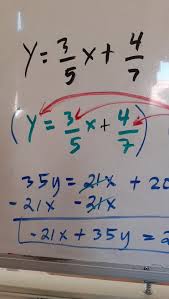 y = 3/5 x + 4/7
(y = 3/5 x + 4/7)
35y = 21x + 20
-21x -21x
-21x + 35y = 2